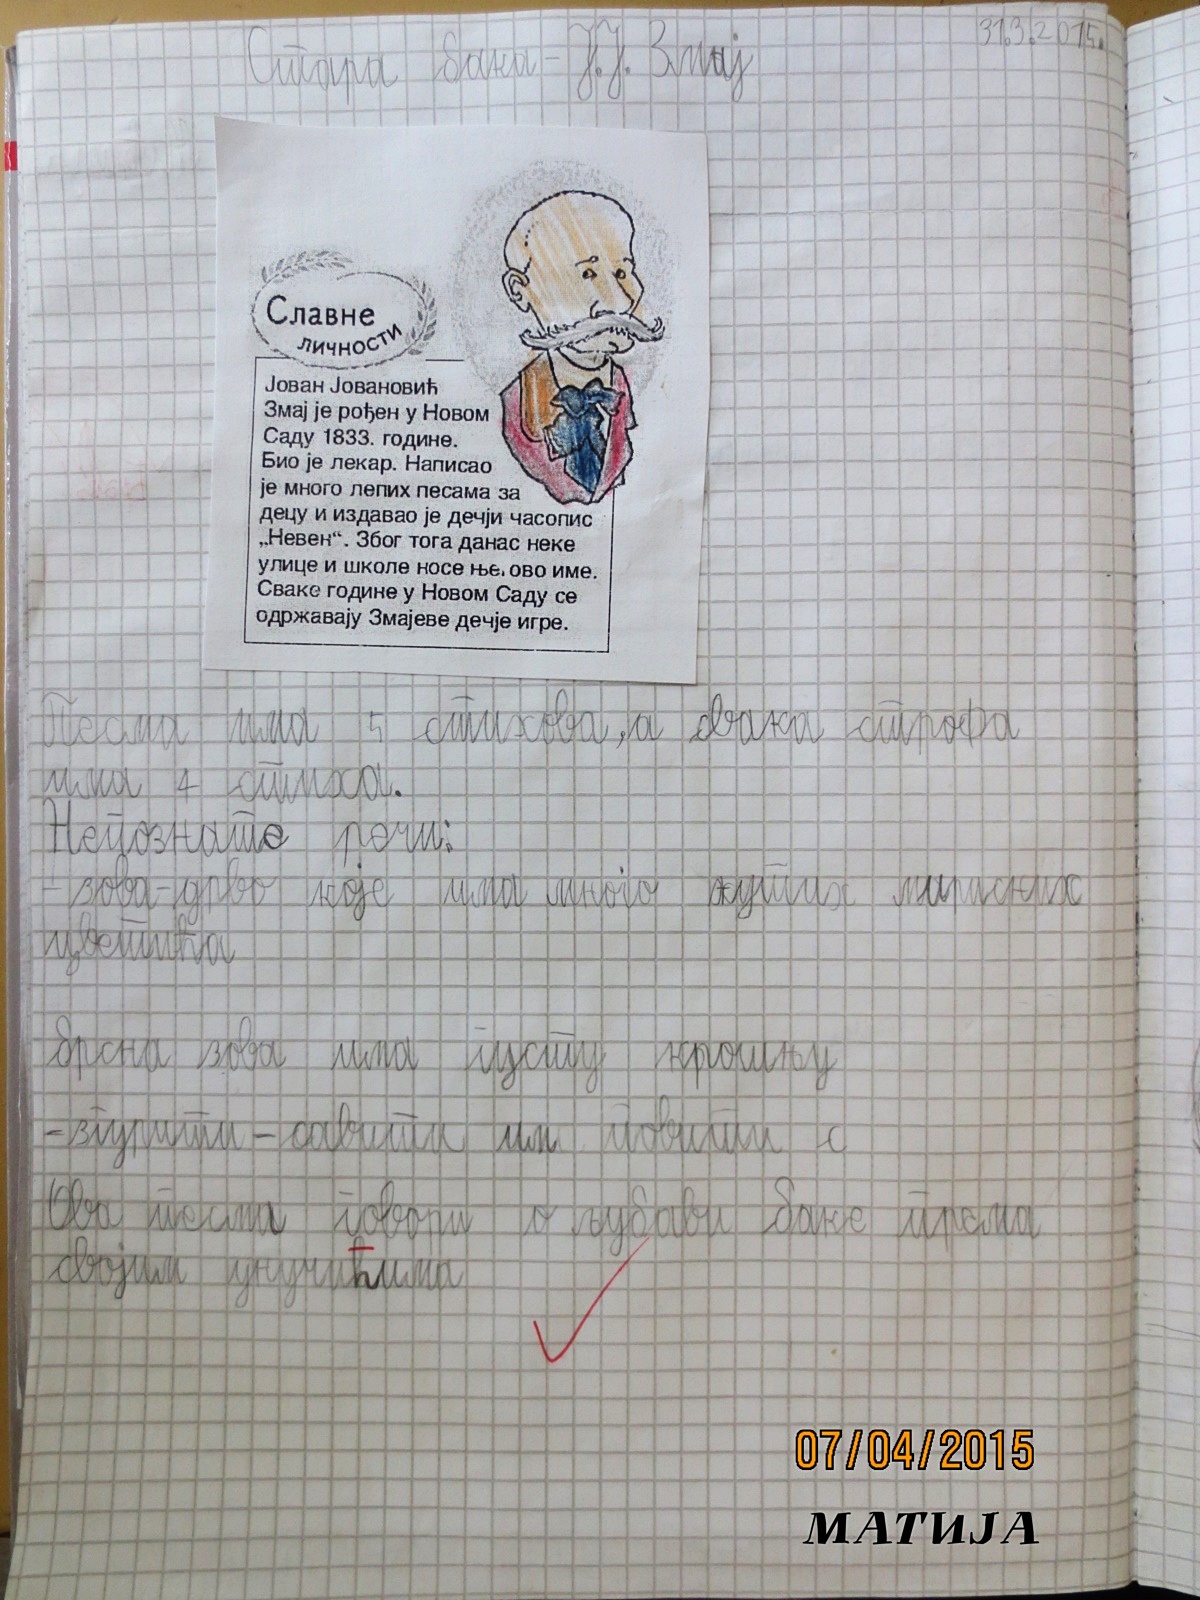 Стара бака-Ј.Ј. Змај
31.3.2015.
Славне
личности
Јован Јовановић
Змај је рођен у Новом
Саду 1833. године.
Био је лекар. Написао
је много лепих песама за
децу и издавао је дечји часопис
„Невен“. Због тога данас неке
улице и школе носе његово име.
Сваке године у Новом Саду се
одржавају Змајеве дечје игре.
Песма има 5 стихова, а свака строфа
има 4 стиха.
Непознате речи:
-зова-дрво које има много жутих мирисних
цветића
брсна зова има густу крошњу
-згурити-савити или повити с
Ова песма говори о љубави баке према
својим унучићима
07/04/2015
МАТИЈА